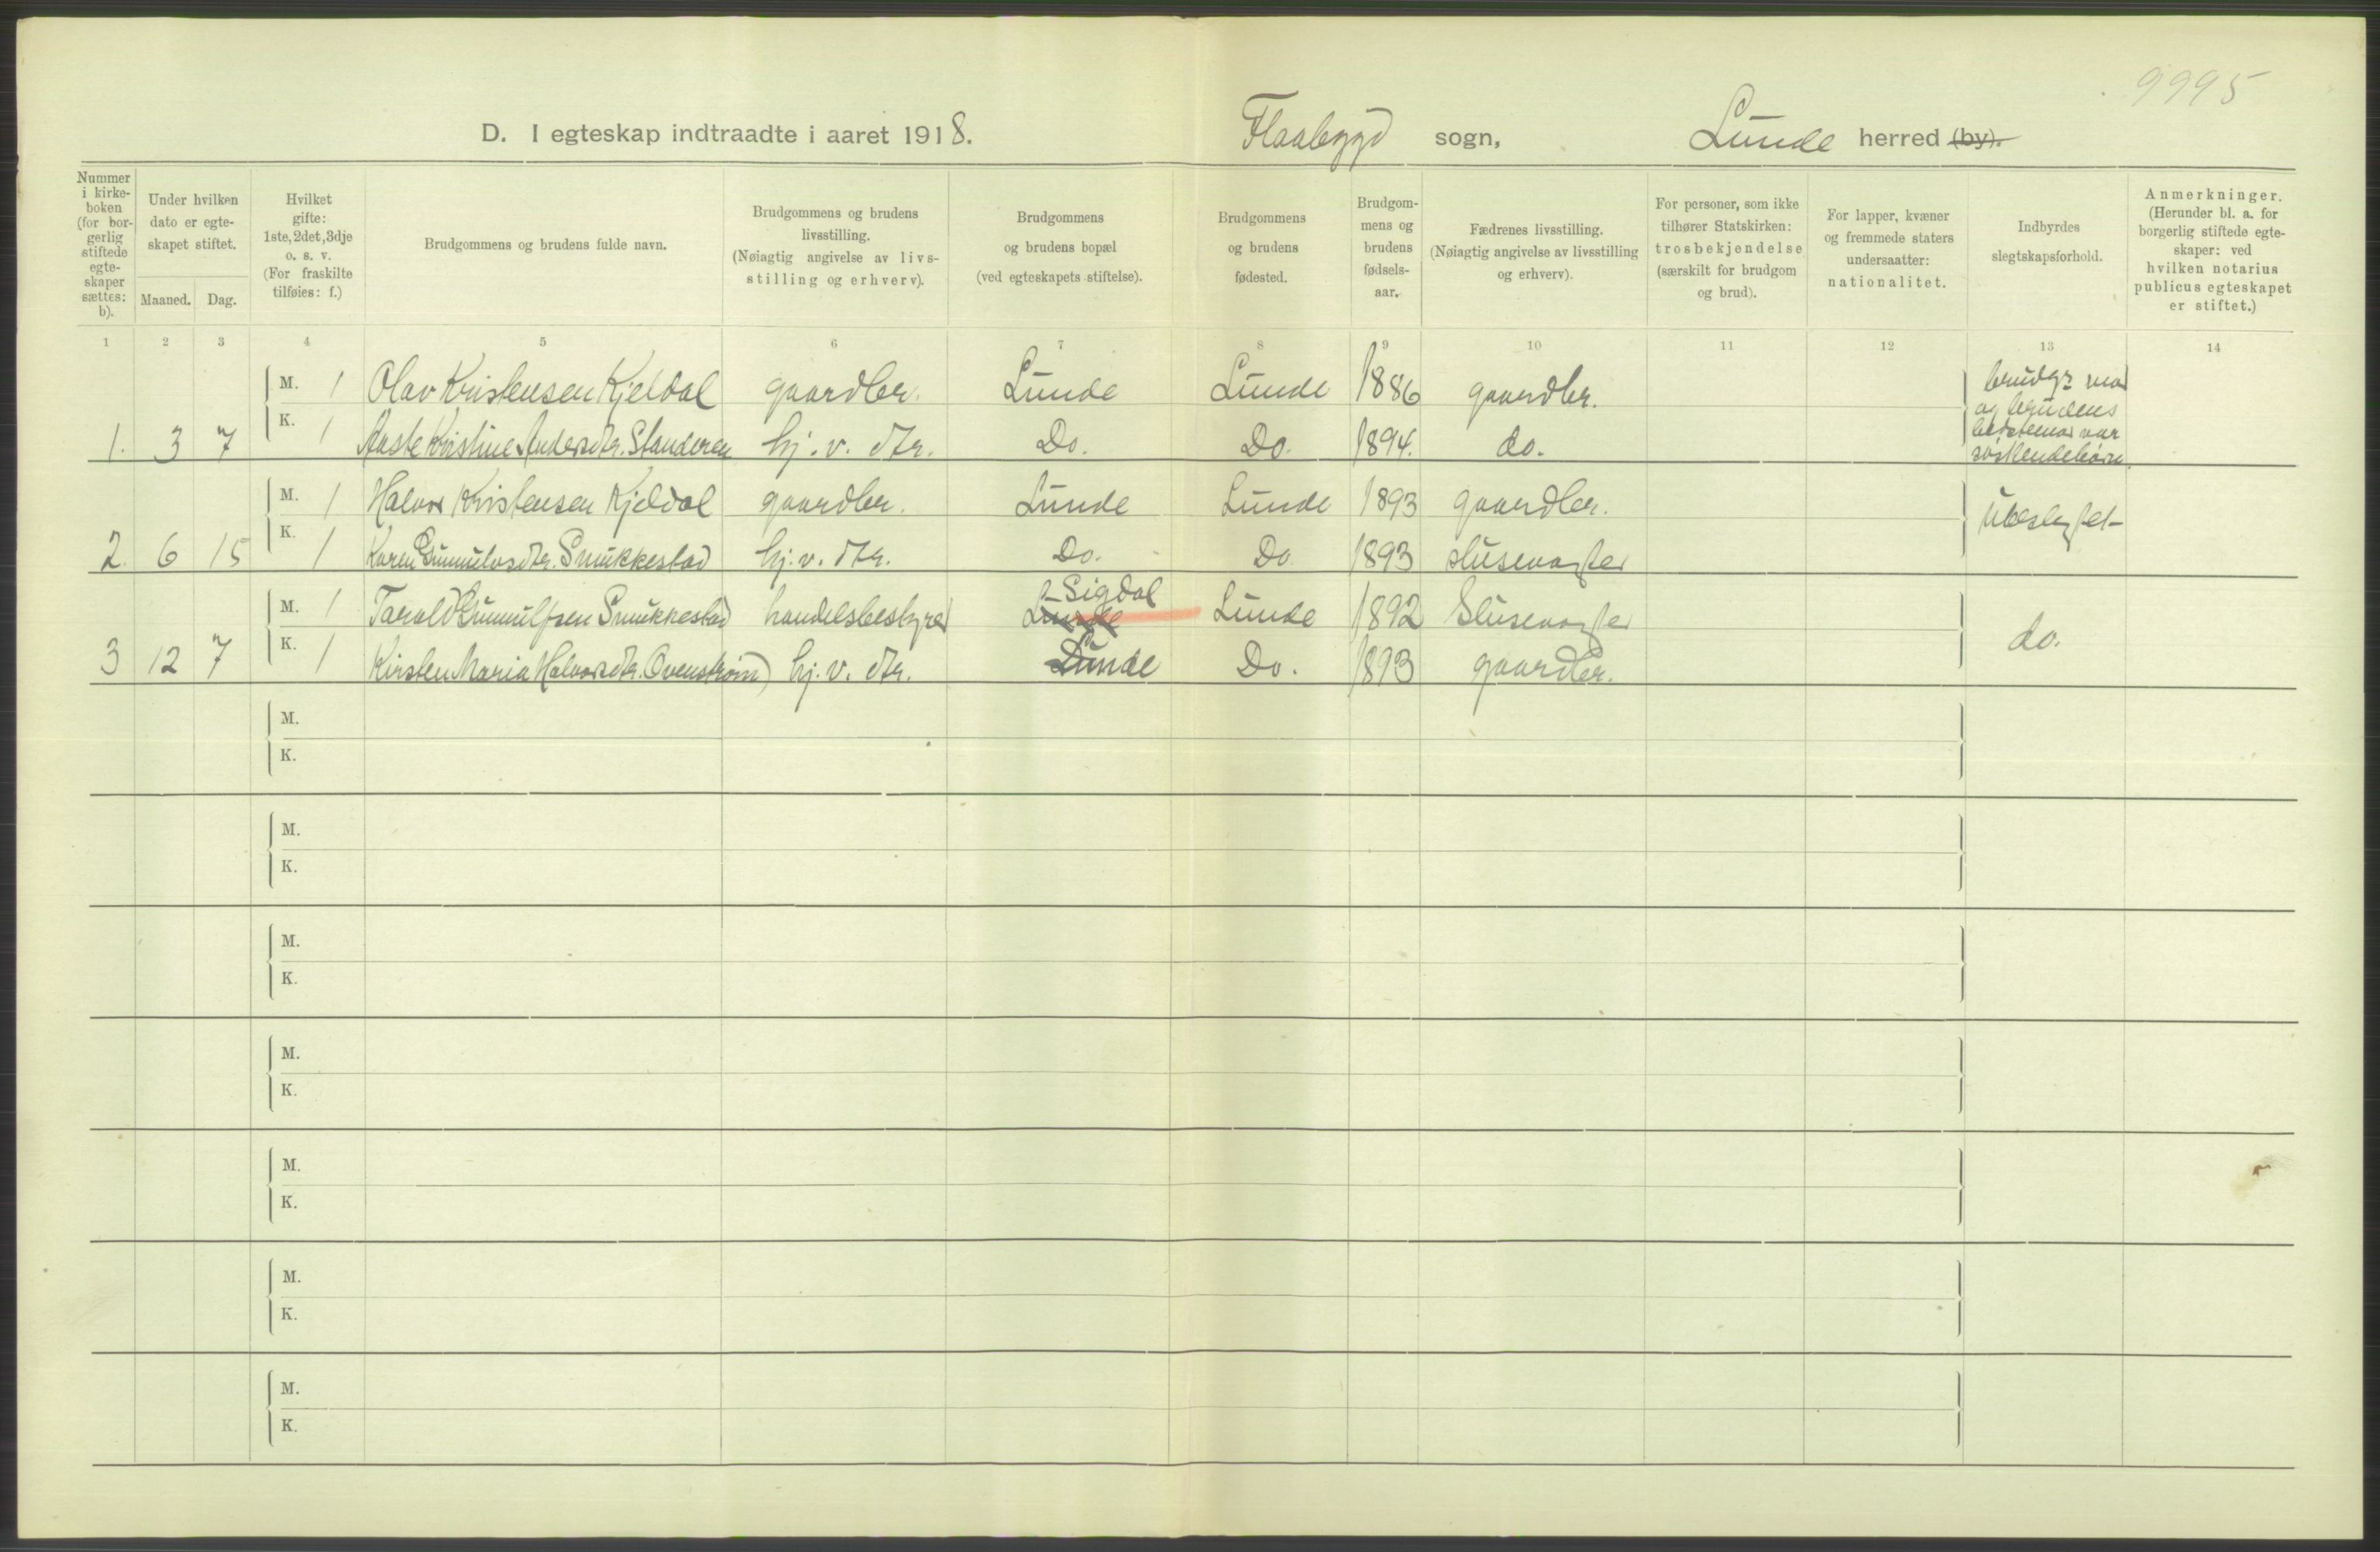 9995
D. I egteskap indtraadte i aaret 1918. Flaabygd sogn, Lunde herred (by).
Nummer i kirke-boken (for bor-gerlig stiftede egte-skaper sættes: b).
Under hvilken dato er egte-skapet stiftet.
Maaned. Dag.
Hvilket gifte: 1ste, 2det, 3dje o. s. v. (For fraskilte tilføies: f.)
Brudgommens og brudens fulde navn.
Brudgommens og brudens livsstilling. (Nøiagtig angivelse av livs-stilling og erhverv).
Brudgommens og brudens bopæl (ved egteskapets stiftelse).
Brudgommens og brudens fødested.
Brudgom-mens og brudens fødsels-aar.
Fædrenes livsstilling. (Nøiagtig angivelse av livsstilling og erhverv).
For personer, som ikke tilhører Statskirken: trosbekjendelse (særskilt for brudgom og brud).
For lapper, kvæner og fremmede staters undersaatter: nationalitet.
Indbyrdes slegtskapsforhold.
Anmerkninger. (Herunder bl. a. for borgerlig stiftede egte-skaper: ved hvilken notarius publicus egteskapet er stiftet.)
1 2 3 4 5 6 7 8 9 10 11 12 13 14
M. 1 Olav Kristensen Kjeldal gaardbr. Lunde Lunde 1886 gaardbr.
1. 3 7 K. 1 Aaste Kristine Andersdtr. Standeren hj. v. dtr. Do. Do. 1894. do.
brudg? mor
og brudens
bestemor var
søskendebørn.
M. 1 Halvor Kristensen Kjeldal gaardbr. Lunde Lunde 1893 gaardbr.
2. 6 15 K. 1 Karen Gunnulvsdtr. Smukkestad hj. v. dtr. Do. Do 1893 slusevogter
Ubeslegtet
Sigdal
M. 1 Tarald Gunnulfsen Smukkestad handelsbestyrer Lunde Lunde 1892 Slusevogter
3 12 7 K. 1 Kirsten Maria Halvorsdtr. Ovenstrøm hj. v. dtr. Lunde Do. 1893 gaardbr.
do.
M.
K.
M.
K.
M.
K.
M.
K.
M.
K.
M.
K.
M.
K.